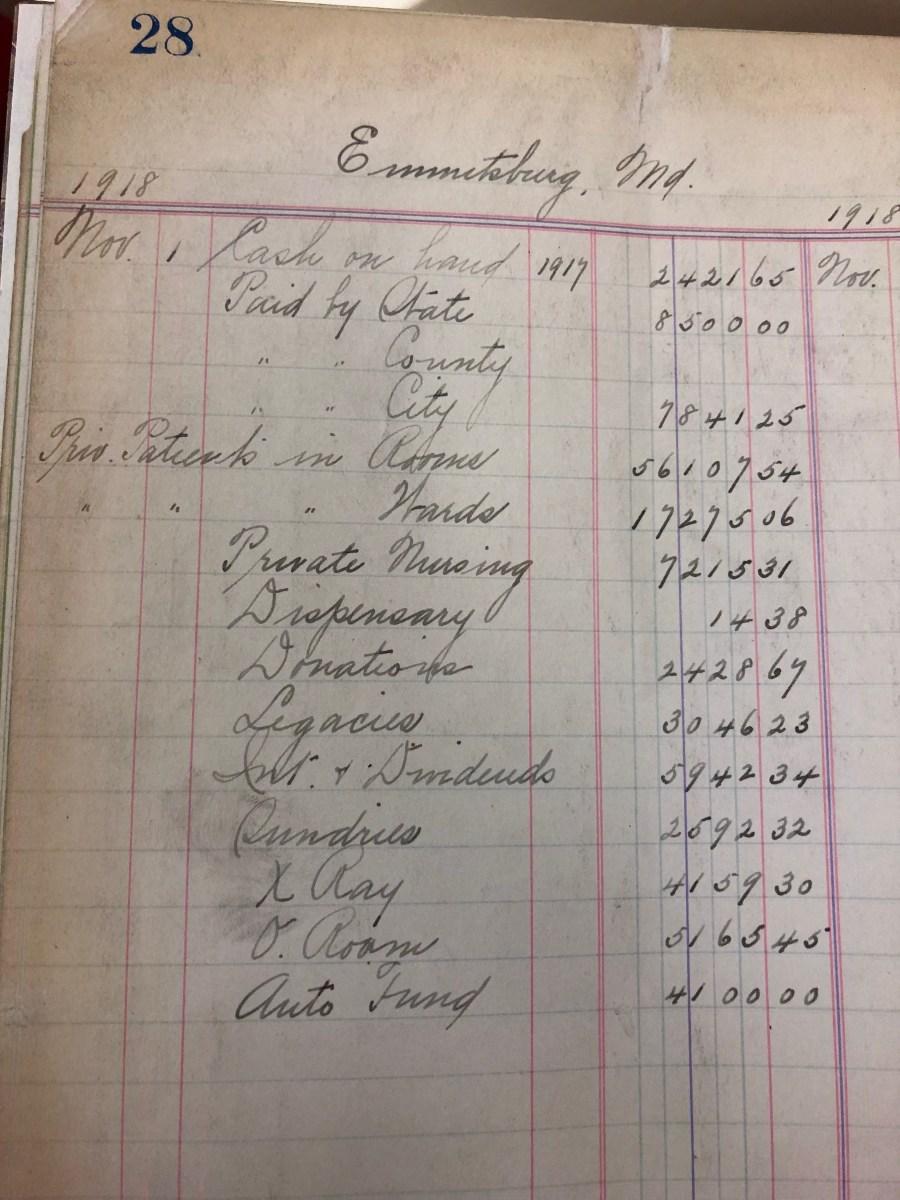 28
Emmitsburg, Md.
1918
1918
Nov. 1 Cash on hand 1917 2421 65 Nov.
Paid by State 8500 00
" " County
" " City 7841 25
Priv. Patients in Rooms 56107 54
" " " Wards 17275 06
Private Nursing 7215 31
Dispensary 14 38
Donations 2428 67
Legacies 3046 23
Int. & Dividends 5942 34
Sundries 2592 32
X Ray 4159 30
O. Room 5165 45
Auto Fund 4100 00